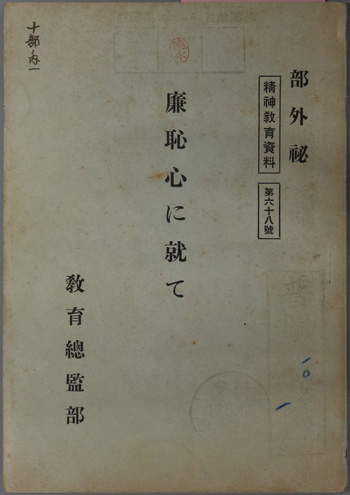 部外祕
精神教育資料
第六十八號
廉恥心に就て
教育總監部
十部ノ内一